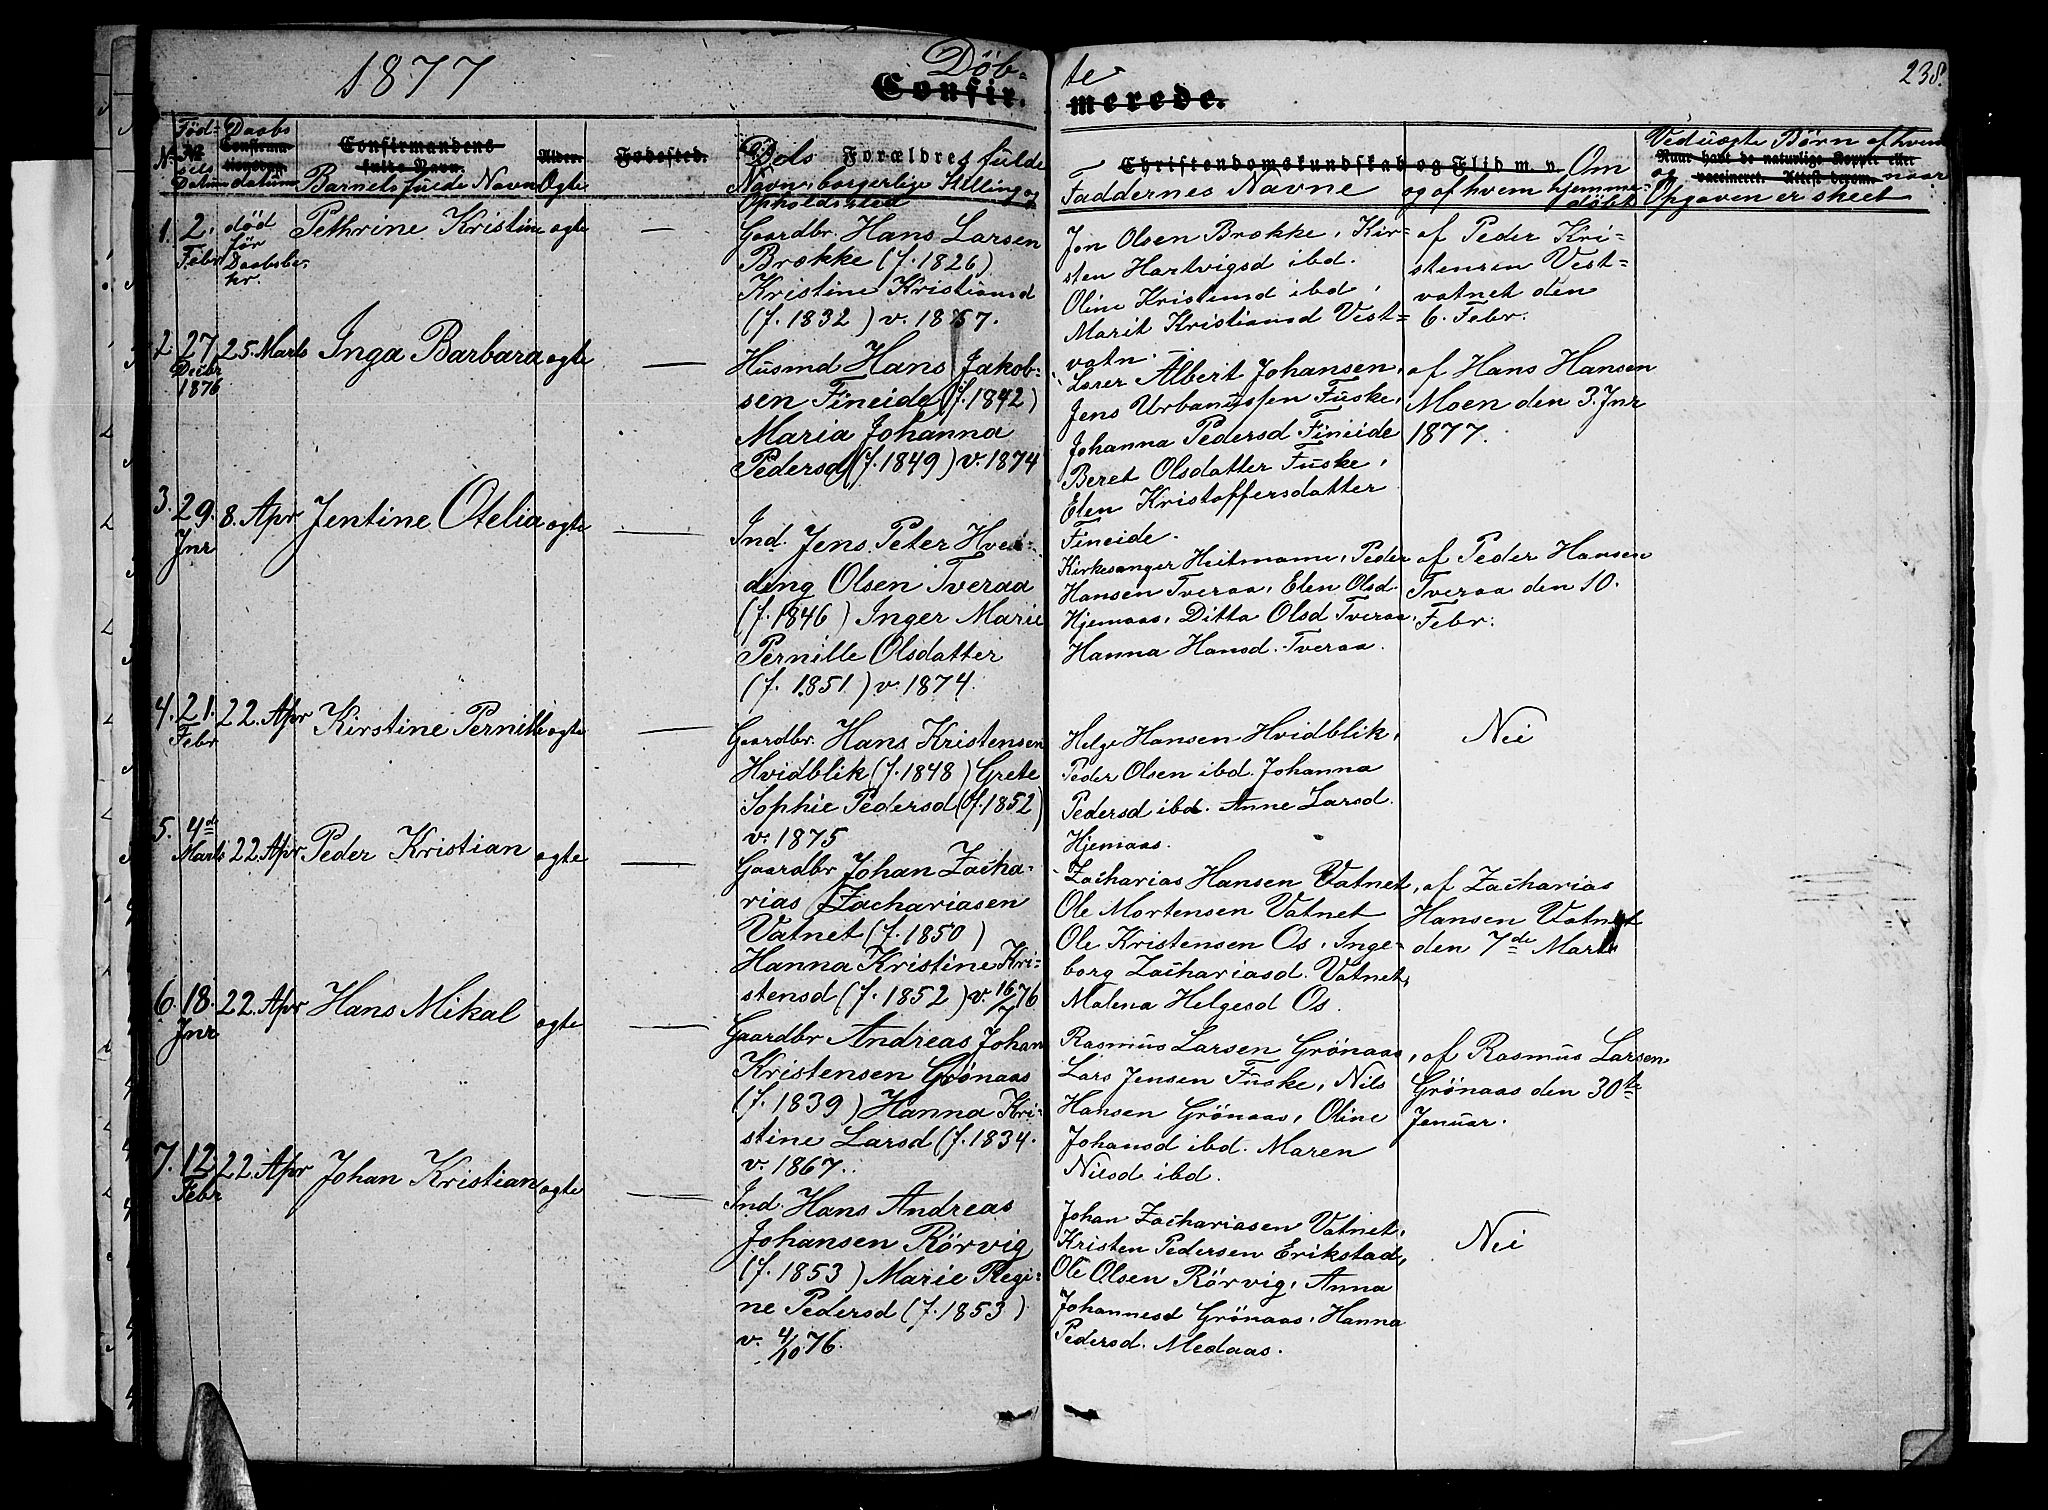 1877
Döb-
Confir-
te
merede.
238.
Föd-
sels
Datum
Daabs
datum
Confirmandens
fulde Navn.
Barnets fulde Navn
Alder.
Ægte
Fødested.
Dets Forældres fulde
Navn, borgerlige Stilling og
Opholdssted
Christendomskundskab og Flid m. v.
Faddernes Navne
Om
og af hvem hjemme-
döbt
Ved uægte Børn af hvem
Naar havt de naturlige Kopper eller
og vaccineret. Attest derom. naar
Opgaven er skeet
1. 2. Febr
död
för
Daabsbe-
kr.
Pethrine Kristine ægte —
Gaardbr. Hans Larsen
Brække (f. 1826)
Kristine Kristiansd
(f. 1832) v. 1857.
Jon Olsen Brække, Kir-
sten Hartvigsd ibd.
Oline Kristensd ibd,
Marit Kristiansd Vest-
vatn.
af Peder Kri-
stensen Vest-
vatnet den
6. Febr.
2. 27 Decbr 1876
25. Marts Inga Barbara ægte —
Husmd Hans Jakob-
sen Fineide (f. 1842)
Maria Johanna
Pedersd (f. 1849) v. 1874
Lærer Albert Johansen,
Jens Urbanussen Fuske,
Johanna Pedersd Fineide
Beret Olsdatter Fuske,
Elen Kristoffersdatter
Fineide.
af Hans Hansen
Moen den 3. Jnr
1877.
3. 29. Jnr
8. Apr Jentine Otelia ægte —
Ind. Jens Peter Hvei-
ding Olsen Tveraa
(f. 1846) Inger Marie
Pernille Olsdatter
(f. 1851) v. 1874.
Kirkesanger Heitmann, Peder
Hansen Tveraa, Elen Olsd.
Hjemaas, Ditta Olsd Tveraa,
Hanna Hansd. Tveraa.
af Peder Hansen
Tveraa den 10.
Febr.
4. 21. Febr
22. Apr Kirstine Pernille ægte —
Gaardbr. Hans Kristensen
Hvidblik (f. 1848) Grete
Sophie Pedersd (f. 1852)
v. 1875
Helge Hansen Hvidblik,
Peder Olsen ibd. Johanna
Pedersd ibd. Anne Larsd.
Hjemaas.
Nei
5. 4de Marts
22. Apr Peder Kristian ægte —
Gaardbr Johan Zacha-
rias Zachariasen
Vatnet (f. 1850)
Hanna Kristine Kri-
stensd (f. 1852) v. 16/7 76
Zacharias Hansen Vatnet,
Ole Mortensen Vatnet
Ole Kristensen Os, Inge-
borg Zachariasd. Vatnet,
Malena Helgesd Os.
af Zacharias
Hansen Vatnet
den 7de Marts
6. 18. Jnr
22. Apr Hans Mikal ægte —
Gaardbr Andreas Johan
Kristensen Grönaas
(f. 1839) Hanna Kri-
stine Larsd (f. 1834.
v. 1867.
Rasmus Larsen Grönaas,
Lars Jensen Fuske, Nils
Hansen Grönaas, Oline
Johansd ibd. Maren
Nilsd ibd.
af Rasmus Larsen
Grönaas den 30te
Januar.
7. 12 Febr
22. Apr Johan Kristian ægte —
Ind. Hans Andreas
Johansen Rörvig
(f. 1853) Marie Regi-
ne Pedersd (f. 1853)
v. 4/10 76.
Johan Zachariasen Vatnet,
Kristen Pedersen Erikstad,
Ole Olsen Rörvig, Anna
Johannesd Grönaas, Hanna
Pedersd. Medaas.
Nei